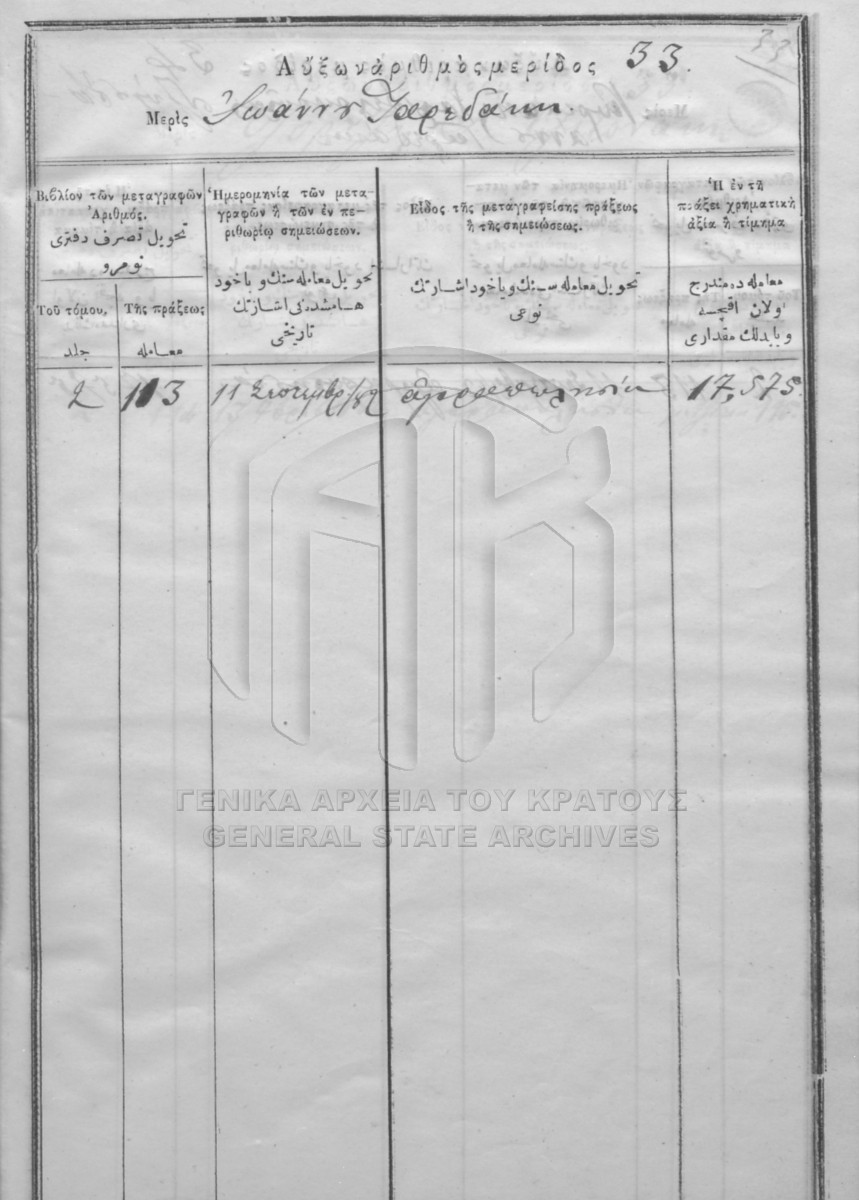 Αὔξων ἀριθμὸς μερίδος 33.
Μερὶς Ἰωάννου
Βιβλίον τῶν μεταγραφῶν
Ἀριθμός.
تحويل تصرف دفترى
نومرو
Τοῦ τόμου,
جلد
Τῆς πράξεως
معامله
Ἡμερομηνία τῶν μετα-
γραφῶν ἢ τῶν ἐν πε-
ριθωρίῳ σημειώσεων.
تحويل معامله سنك و ياخود
هامشده كى اشارتك
تاريخى
Εἶδος τῆς μεταγραφείσης πράξεως
ἢ τῆς σημειώσεως.
تحويل معامله سنك و ياخود اشارتك
نوعى
Ἡ ἐν τῇ
πράξει χρηματικὴ
ἀξία ἢ τίμημα
معامله ده مندرج
اولان اقچه
و يا بدلك مقدارى
2 113 11 Σεπτεμβρ/82 ἀγοραπωλησία 17,575.
ΓΕΝΙΚΑ ΑΡΧΕΙΑ ΤΟΥ ΚΡΑΤΟΥΣ
GENERAL STATE ARCHIVES